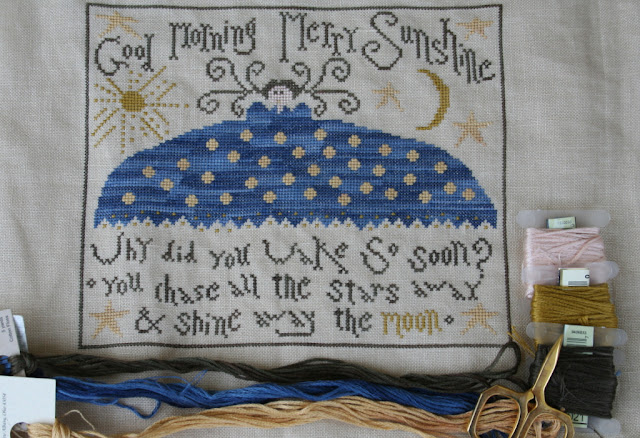 Good Morning Merry Sunshine
Why did you Wake So Soon?
you chase all the stars away
& shine away the moon.